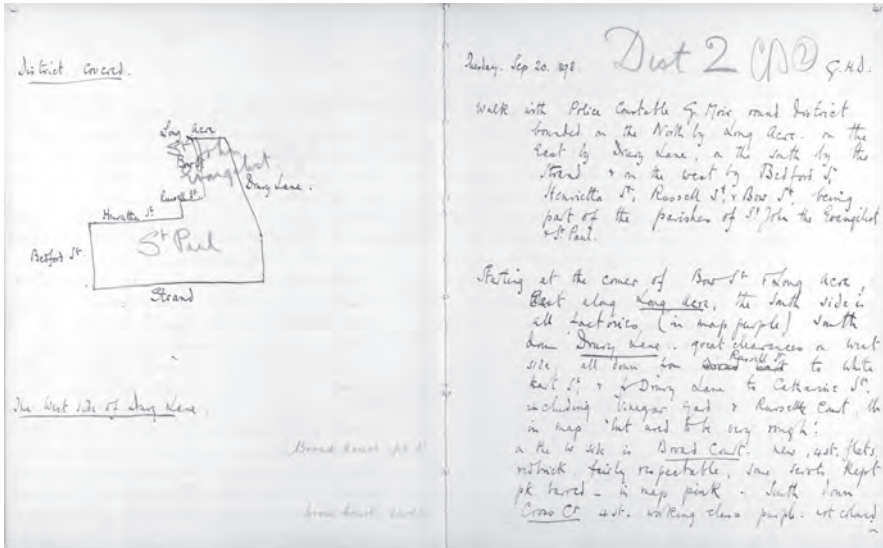 District Covered.
Long Acre
St John
Evangelist
Bow St
Drury Lane.
Russell St
Henrietta St.
St Paul
Bedford St.
Strand
The West side of Drury Lane.
Broad Court
Tuesday. Sep 20. 1898. Dist 2 G.H.D.
Walk with Police Constable G. Moir round District
bounded on the North by Long Acre. on the
East by Drury Lane, on the south by the
Strand & on the west by Bedford St,
Henrietta St, Russell St, & Bow St, being
part of the parishes of St John the Evangelist
& St Paul.
Starting at the corner of Bow St & Long Acre,
East along Long Acre, the South side is
all factories (in map purple) South
down Drury Lane .. great clearances on west
side, all down from Russell St to White
Hart St, & fr Drury Lane to Catharine St.
including Vinegar Yard & Russell Court,
in map 'but used to be very rough'.
On the W side is Broad Court. new, 4st. flats,
redbrick, fairly respectable, some servts kept
pk barred - in map pink. South down
Cross Ct 4st. working class purple. not coloured